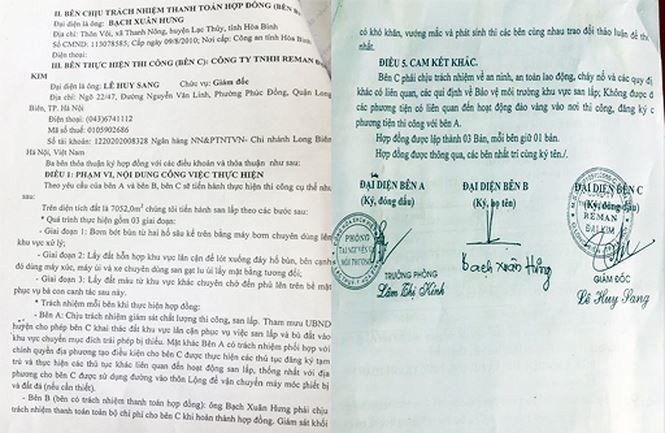 II. BÊN CHỊU TRÁCH NHIỆM THANH TOÁN HỢP ĐỒNG (BÊN B)
Đại diện là ông: BẠCH XUÂN HƯNG
Địa chỉ: Thôn Vôi, xã Thanh Nông, huyện Lạc Thủy, tỉnh Hòa Bình
Số CMND: 113078585; Cấp ngày 09/8/2010; Nơi cấp: Công an tỉnh Hòa Bình.
Điện thoại:
III. BÊN THỰC HIỆN THI CÔNG (BÊN C): CÔNG TY TNHH REMAN
KIM
Đại diện là ông: LÊ HUY SANG Chức vụ: Giám đốc
Địa chỉ: Ngõ 22/47, Đường Nguyễn Văn Linh, Phường Phúc Đồng, Quận Long
Biên, TP. Hà Nội
Điện thoại: (043)6741112
Mã số thuế: 0105902686
Số tài khoản: 1220202008328 Ngân hàng NN&PTNTVN- Chi nhánh Long Biên
Hà Nội, Việt Nam
Ba bên thỏa thuận ký hợp đồng với các điều khoản và thỏa thuận như sau:
ĐIỀU 1: PHẠM VI, NỘI DUNG CÔNG VIỆC THỰC HIỆN
Theo yêu cầu của bên A và bên B, bên C sẽ tiến hành thực hiện thi công cụ thể như
sau:
Trên diện tích đất là 7052,0m² chúng tôi tiến hành san lấp theo các bước sau:
* Quá trình thực hiện gồm 03 giai đoạn:
- Giai đoạn 1: Bơm bót bùn từ hai hố sâu kể trên bằng máy bơm chuyên dùng lên
khu vực xử lý;
- Giai đoạn 2: Lấy đất hỗn hợp khu vực lân cận để lót xuống đáy hố bùn, bên cạnh
đó dùng máy xúc, máy ủi và xe chuyên dùng san gạt lu ủi lấy mặt bằng tương đối;
- Giai đoạn 3: Lấy đất màu từ khu vực khác chuyên chở đến phủ lên trên bề mặt
phục vụ bà con canh tác sau này.
* Trách nhiệm mỗi bên khi thực hiện hợp đồng:
- Bên A: Chịu trách nhiệm giám sát chất lượng thi công, san lấp. Tham mưu UBND
huyện cho phép bên C khai thác đất khu vực lân cận phục vụ việc san lấp và bù đất vào
khu vực chuyển mục đích trái phép bị thiếu. Mặt khác Bên A có trách nhiệm phối hợp với
chính quyền địa phương tạo điều kiện cho bên C được thực hiện các thủ tục đăng ký tạm
trú và thực hiện các thủ tục khác liên quan đến hoạt động san lấp, thống nhất với địa
phương cho bên C được sử dụng đường vào thôn Lộng để vận chuyển máy móc thiết bị
và đất đá (nếu cần thiết).
- Bên B (bên có trách nhiệm thanh toán hợp đồng): ông Bạch Xuân Hưng phải chịu
trách nhiệm thanh toán toàn bộ chi phí cho bên C khi hoàn thành hợp đồng. Giám sát khối
có khó khăn, vướng mắc và phát sinh thì các bên cùng nhau trao đổi thảo luận để
nhất.
ĐIỀU 5. CAM KẾT KHÁC.
Bên C phải chịu trách nhiệm về an ninh, an toàn lao động, cháy nổ và các quy đị
khác có liên quan, các qui định về Bảo vệ môi trường khu vực san lấp; Không được đ
các phương tiện có liên quan đến hoạt động đào vàng vào nơi thi công, đăng k
phương tiện thi công với bên A.
Hợp đồng được lập thành 03 Bản, mỗi bên giữ 01 bản.
Hợp đồng được thông qua, các bên nhất trí cùng ký tên./.
ĐẠI DIỆN BÊN A ĐẠI DIỆN BÊN B ĐẠI DIỆN BÊN C
(Ký, đóng dấu) (Ký, họ tên) (Ký, đóng dấu)
PHÒNG
TÀI NGUYÊN VÀ
MÔI TRƯỜNG
REMAN
ĐẠI KIM
Bạch Xuân Hưng
TRƯỞNG PHÒNG
Lâm Thị Kính
GIÁM ĐỐC
Lê Huy Sang